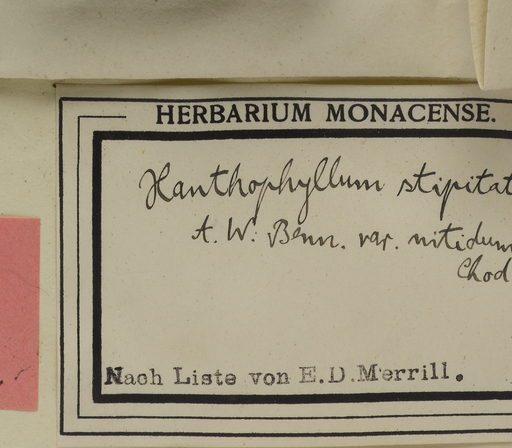 HERBARIUM MONACENSE.
Xanthophyllum stipitat
A. W. Benn. var. nitidum
Chod
Nach Liste von E.D.Merrill.